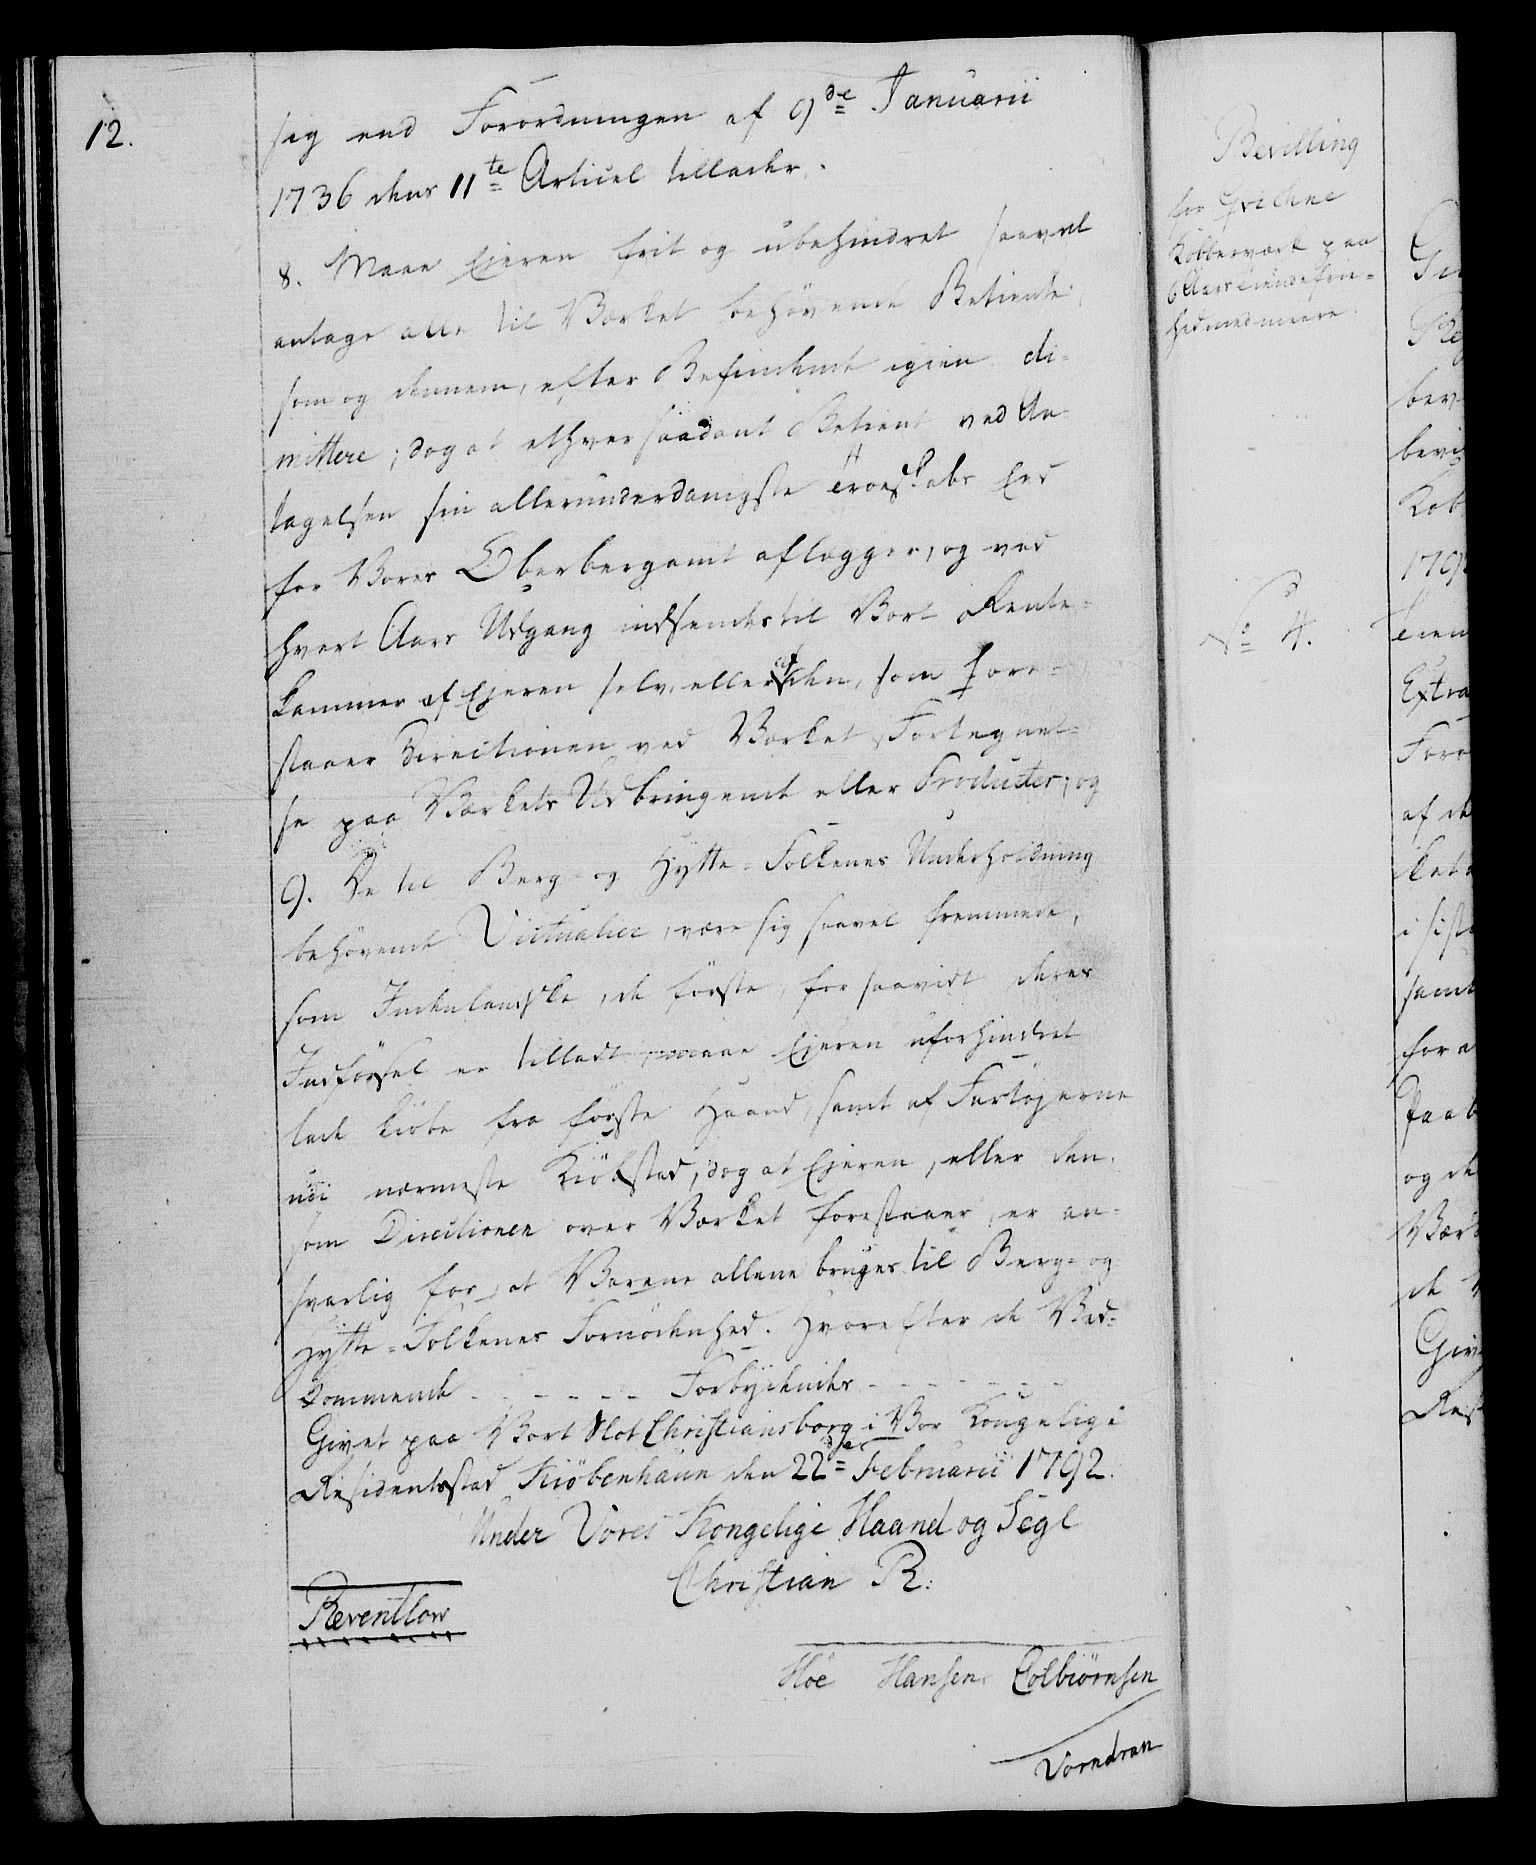 12.
sig end Forordningen af 9de Januarii
1736 dens 11te Articul tillader.
8. Maae Ejeren frit og ubehindret saavel
antage alle til Værket behövende Betiente,
som og dennem, efter Befindende igien di-
mittere; dog at ethver saadant Betient ved An-
tagelsen sin allerunderdanigste Troeskabs Eed
for Vores Oberbergamt aflegger, og ved
hvert Aars Udgang indsendes til Vort Rente-
kammer af Ejeren selv, eller af den, som fore-
staaer Directionen ved Værket, Fortegnel-
se paa Værkets Udbringende eller Producter; og
9. De til Berg- og Hytte-Folkenes Underholdning
behövende Victualier, være sig saavel fremmede,
som Indenlandske, de förste, for saavidt deres
Indförsel er tilladt, maae Ejeren uforhindret
lade kiöbe fra förste Haand, samt af Fartöjerne
udi nærmeste Kiöbstad, dog at Ejeren, eller den,
som Directionen over Værket forestaaer, er an-
svarlig for, at Varene allene bruges til Berg- og
Hytte-Folkenes Fornödenhed. Hvorefter de Ved-
kommende - - - - - - Forbydendes - - - - - - -
Givet paa Vort Slot Christiansborg i Vor Kongelige
Residentsstad Kiöbenhavn den 22de Februarii 1792.
Under Vores Kongelige Haand og Segl
Christian R:
Reventlow
Höe Hansen, Colbiörnsen
Vorndran
Bevilling
for Qvickne
Kobberværk paa
6 Aars Tiendefri-
hed med meere.
No 4.
bev
Kob
179
Extra
Foro
af de
samt
for
Paa
og de
Vær
de
Giv
Res